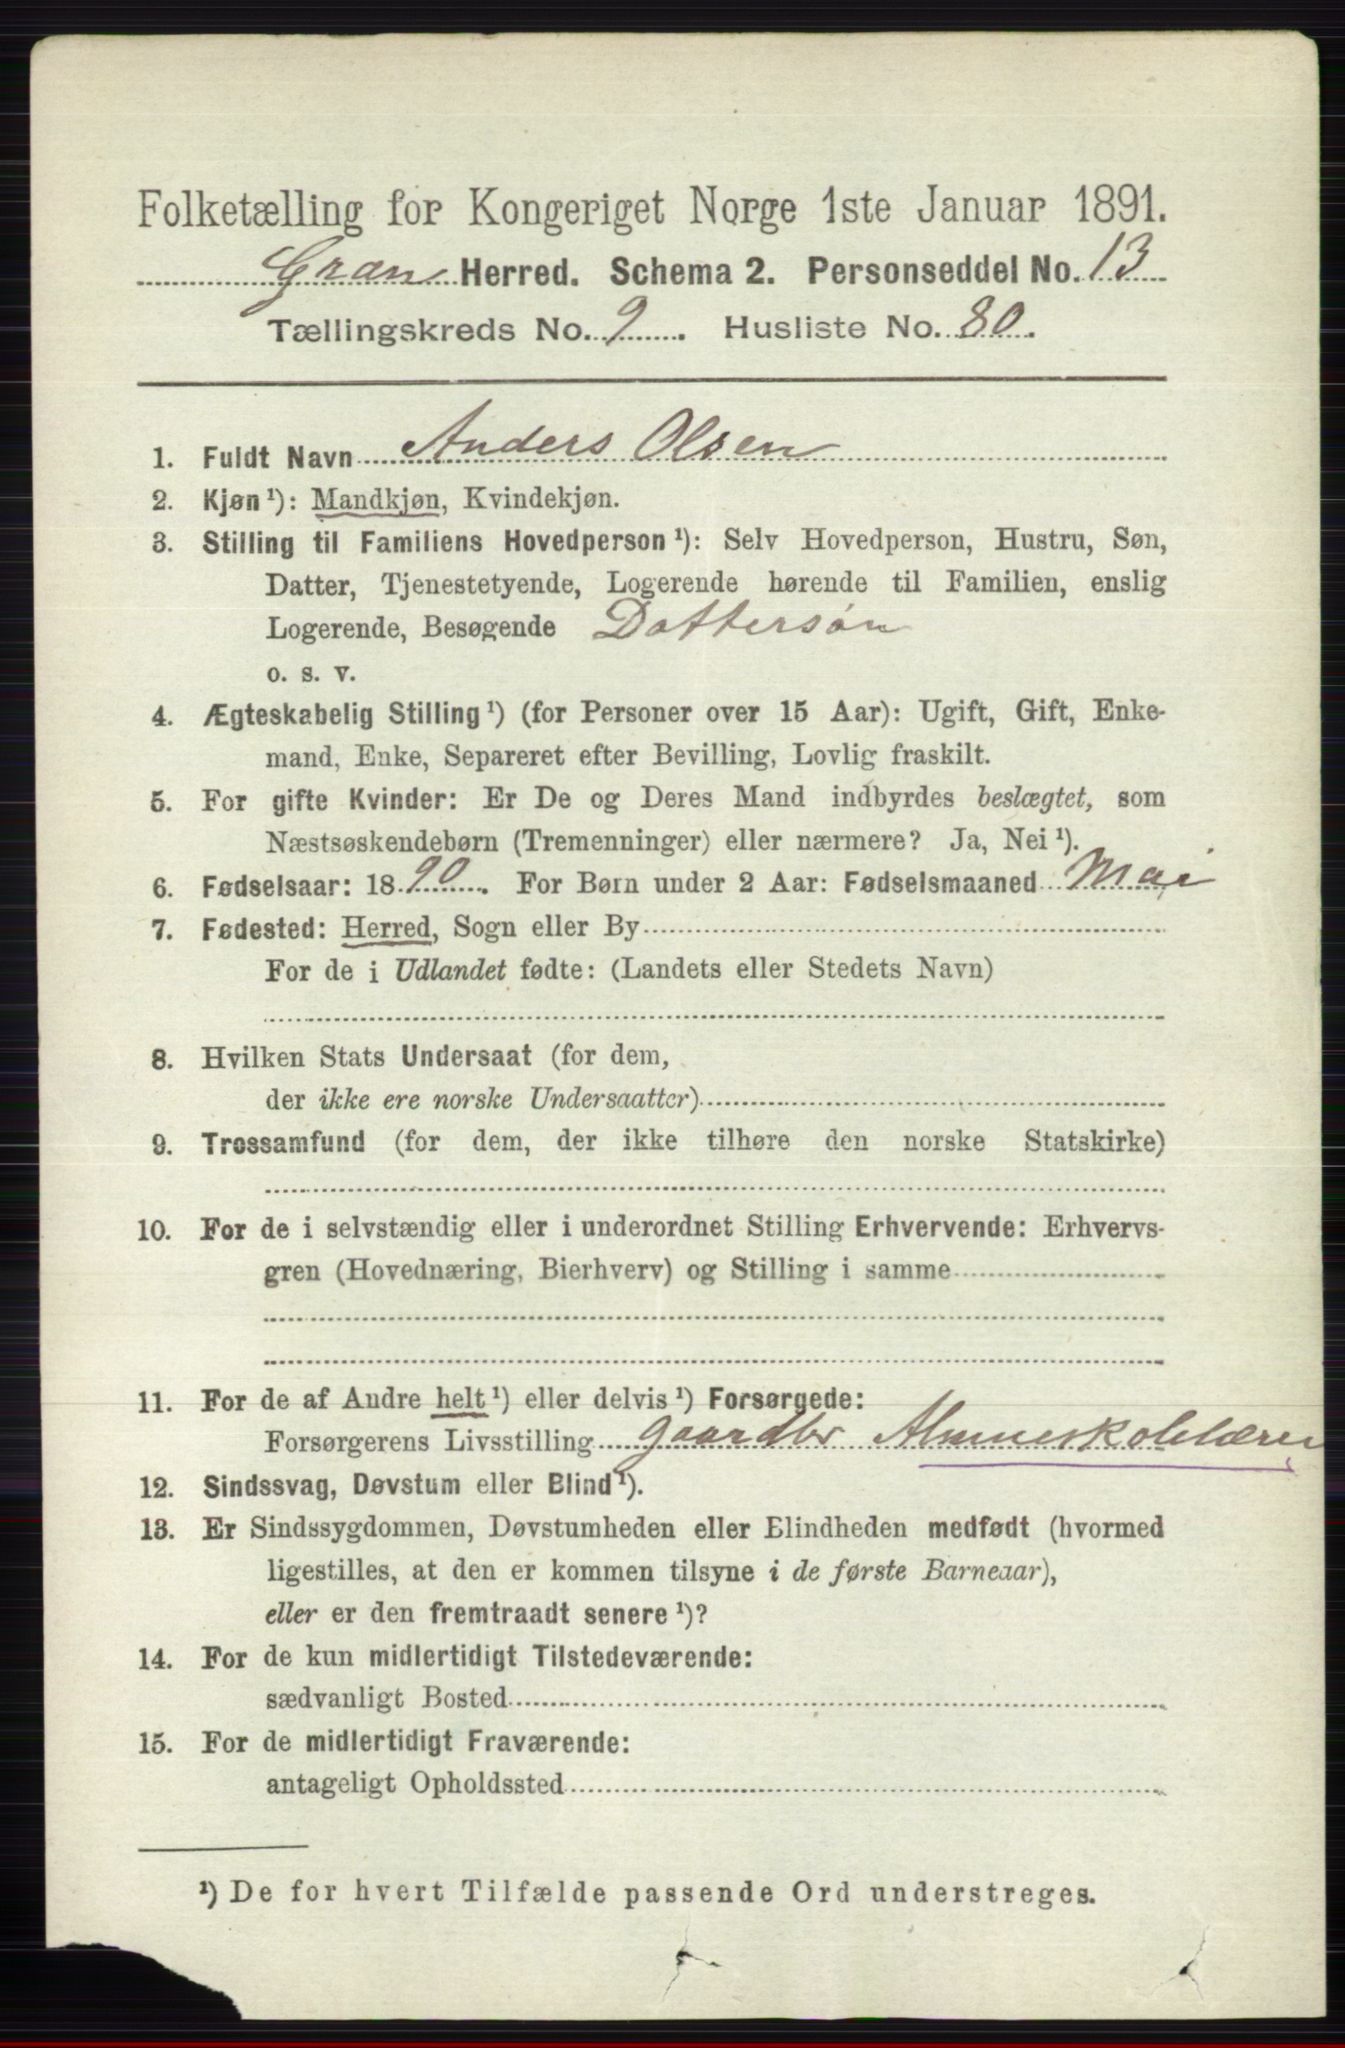 Folketælling for Kongeriget Norge 1ste Januar 1891.
Gran Herred. Schema 2. Personseddel No. 13
Tællingskreds No. 9. Husliste No. 80.
1. Fuldt Navn Anders Olsen
2. Kjøn ¹): Mandkjøn, Kvindekjøn.
3. Stilling til Familiens Hovedperson ¹): Selv Hovedperson, Hustru, Søn,
Datter, Tjenestetyende, Logerende hørende til Familien, enslig
Logerende, Besøgende Dattersøn
o. s. v.
4. Ægteskabelig Stilling ¹) (for Personer over 15 Aar): Ugift, Gift, Enke-
mand, Enke, Separeret efter Bevilling, Lovlig fraskilt.
5. For gifte Kvinder: Er De og Deres Mand indbyrdes beslægtet, som
Næstsøskendebørn (Tremenninger) eller nærmere? Ja, Nei ¹).
6. Fødselsaar: 1890. For Børn under 2 Aar: Fødselsmaaned Mai
7. Fødested: Herred, Sogn eller By
For de i Udlandet fødte: (Landets eller Stedets Navn)
8. Hvilken Stats Undersaat (for dem,
der ikke ere norske Undersaatter)
9. Trossamfund (for dem, der ikke tilhøre den norske Statskirke)
10. For de i selvstændig eller i underordnet Stilling Erhvervende: Erhvervs-
gren (Hovednæring, Bierhverv) og Stilling i samme
11. For de af Andre helt ¹) eller delvis ¹) Forsørgede:
Forsørgerens Livsstilling gaardbr Almueskolelærer
12. Sindssvag, Døvstum eller Blind ¹).
13. Er Sindssygdommen, Døvstumheden eller Blindheden medfødt (hvormed
ligestilles, at den er kommen tilsyne i de første Barneaar),
eller er den fremtraadt senere ¹)?
14. For de kun midlertidigt Tilstedeværende:
sædvanligt Bosted
15. For de midlertidigt Fraværende:
antageligt Opholdssted
¹) De for hvert Tilfælde passende Ord understreges.